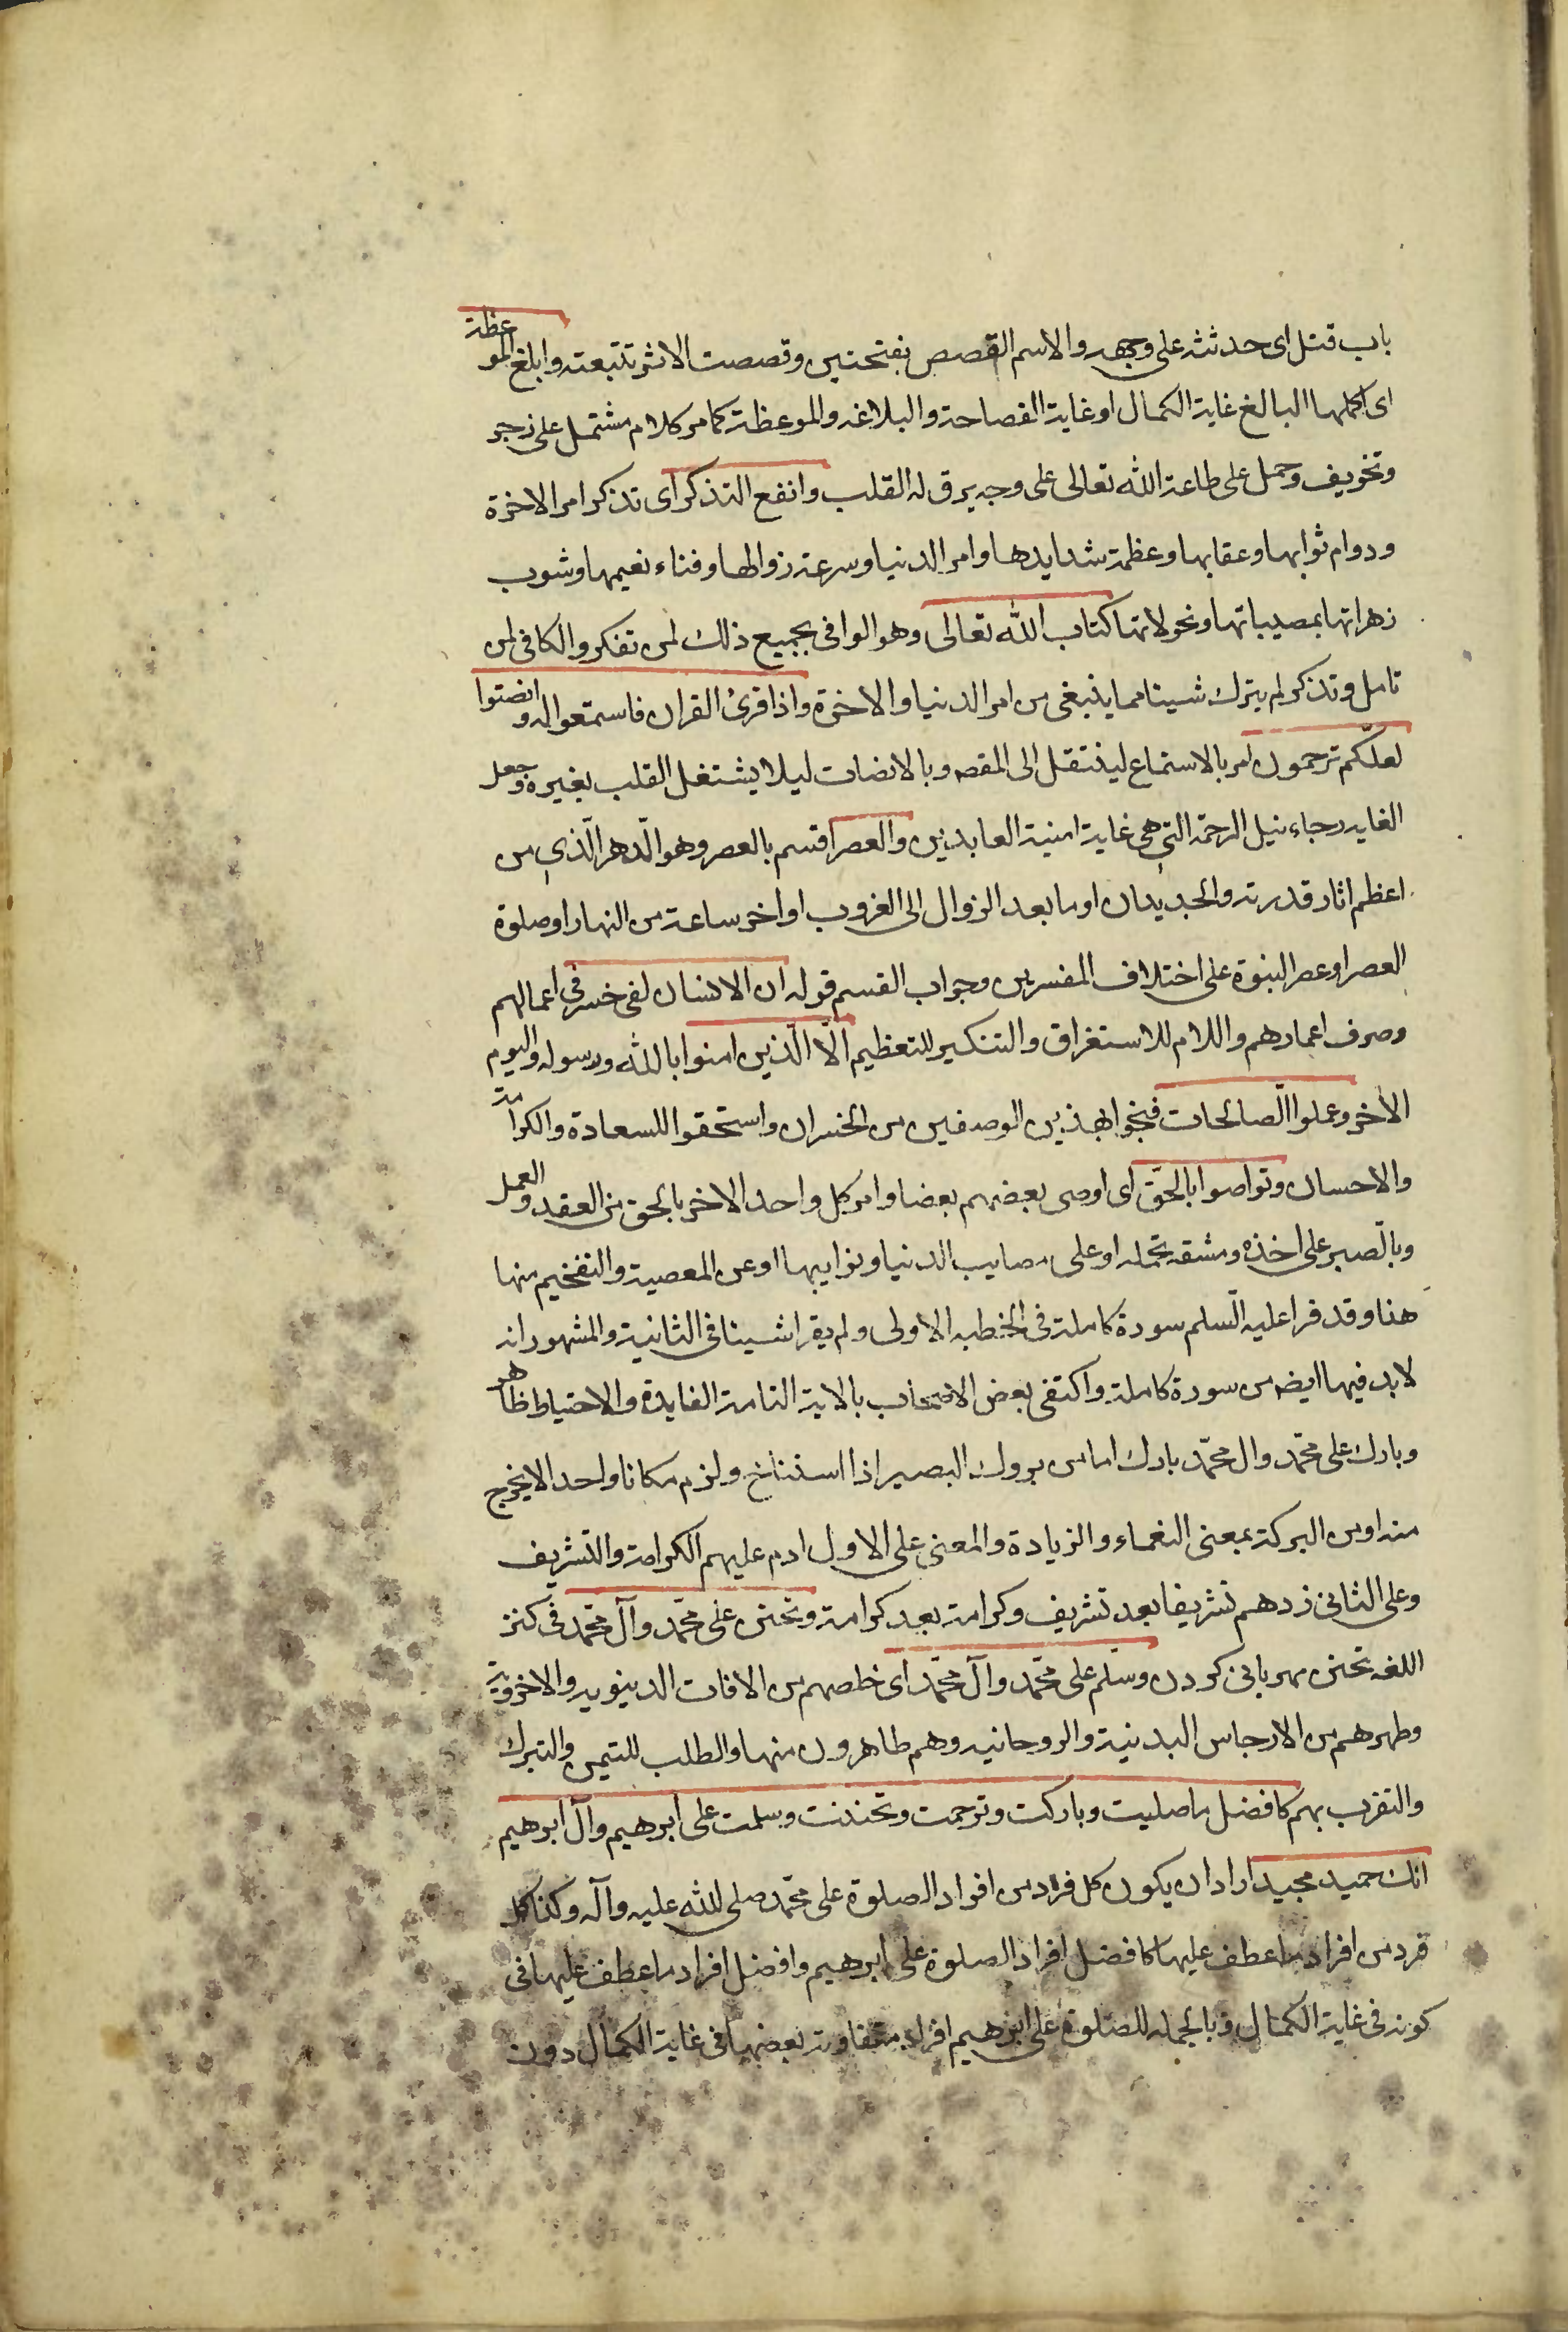 باب قتل اى حدثته على وجهه والاسم القصص بفتحتين وقصصت الاثر تتبعته وابلغ الموعظة
اى اكملها البالغ غاية الكمال او غاية الفصاحة والبلاغه والموعظة كما مر كلام مشتمل على زجر
وتخويف وحمل على طاعة الله تعالى على وجه يرق له القلب وانفع التذكر اى تذكر امر الاخرة
ودوام ثوابها وعقابها وعظمة شدايدها وامر الدنيا وسرعة زوالها وفناء نعيمها وشوب
زهراتها بمصيباتها ونحولاتها كتاب الله تعالى وهو الوافى بجميع ذلك لمن تفكر والكافى لمن
تامل وتذكر لم يترك شيئا مما ينبغى من امر الدنيا والاخرة واذا قرئ القران فاستمعوا له وانصتوا
لعلّكم ترحمون امر بالاستماع لينتقل الى المقصد وبالانصات ليلا يشتغل القلب بغيره وجعل
الغايه رجاء نيل الرحمة التى هى غاية امنية العابدين والعصر اقسم بالعصر وهو الّدهر الّذى من
اعظم اثار قدرته والجديدان او ما بعد الزوال الى الغروب او اخر ساعة من النهار او صلوة
العصر او عصر النبوة على اختلاف المفسرين وجواب القسم قوله ان الانسان لفى خسر فى اعمالهم
وصرف اعمارهم واللام للاستغراق والتنكير للتعظيم الّا الّذين امنوا بالله ورسوله واليوم
الاخر وعملوا الّصالحات فنجوا بهذين الوصفين من الخسران واستحقوا للسعادة والكرامة
والاحسان وتواصوا بالحقّ اى اوصى بعضهم بعضا وامر كل واحد الاخر بالحق من العقد والعمل
وبالّصبر على اخذه ومشقه تحمله او على مصايب الدنيا ونوايبها او عن المعصية والتفخيم منها
هنا وقد قرا عليه السّلم سورة كاملة فى الخطبه الاولى ولم يقرا شيئا فى الثانية والمشهور انه
لابد فيها ايضه من سورة كاملة واكتفى بعض الاصحاب بالاية التامة الفايدة والاحتياط ظاهر
وبارك على محمّد وال محمّد بارك اما من بروك البعير اذا استناخ ولزم مكانا واحدا لا يخرج
منه او من البركة بمعنى النماء والزيادة والمعنى على الاول ادم عليهم الكرامة والتشريف
وعلى الثانى زدهم تشريفا بعد تشريف وكرامة بعد كرامة وتحنن على محمّد وآل محمّد فى كنز
اللغه تحنن مهربانى كردن وسلّم على محمّد وآل محمّد اى خلصهم من الافات الدينويه والاخروية
وطهرهم من الارجاس البدنية والروحانيه وهم طاهرون منها والطلب للتيمن والتبرك
والتقرب بهم كافضل ما صليت وباركت وترحمت وتحننت وسلمت على ابرهيم وآل ابرهيم
انك حميد مجيد اراد ان يكون كل فرد من افراد الصلوة على محمّد صلى الله عليه وآله وكذا كل
فرد من افراد ما عطف عليها كافضل افراد الصلوة على ابرهيم وافضل افراد ما عطف عليها فى
كونه فى غاية الكمال وبالجمله للصلوة على ابرهيم افراد متفاوتة بعضها فى غاية الكمال دون